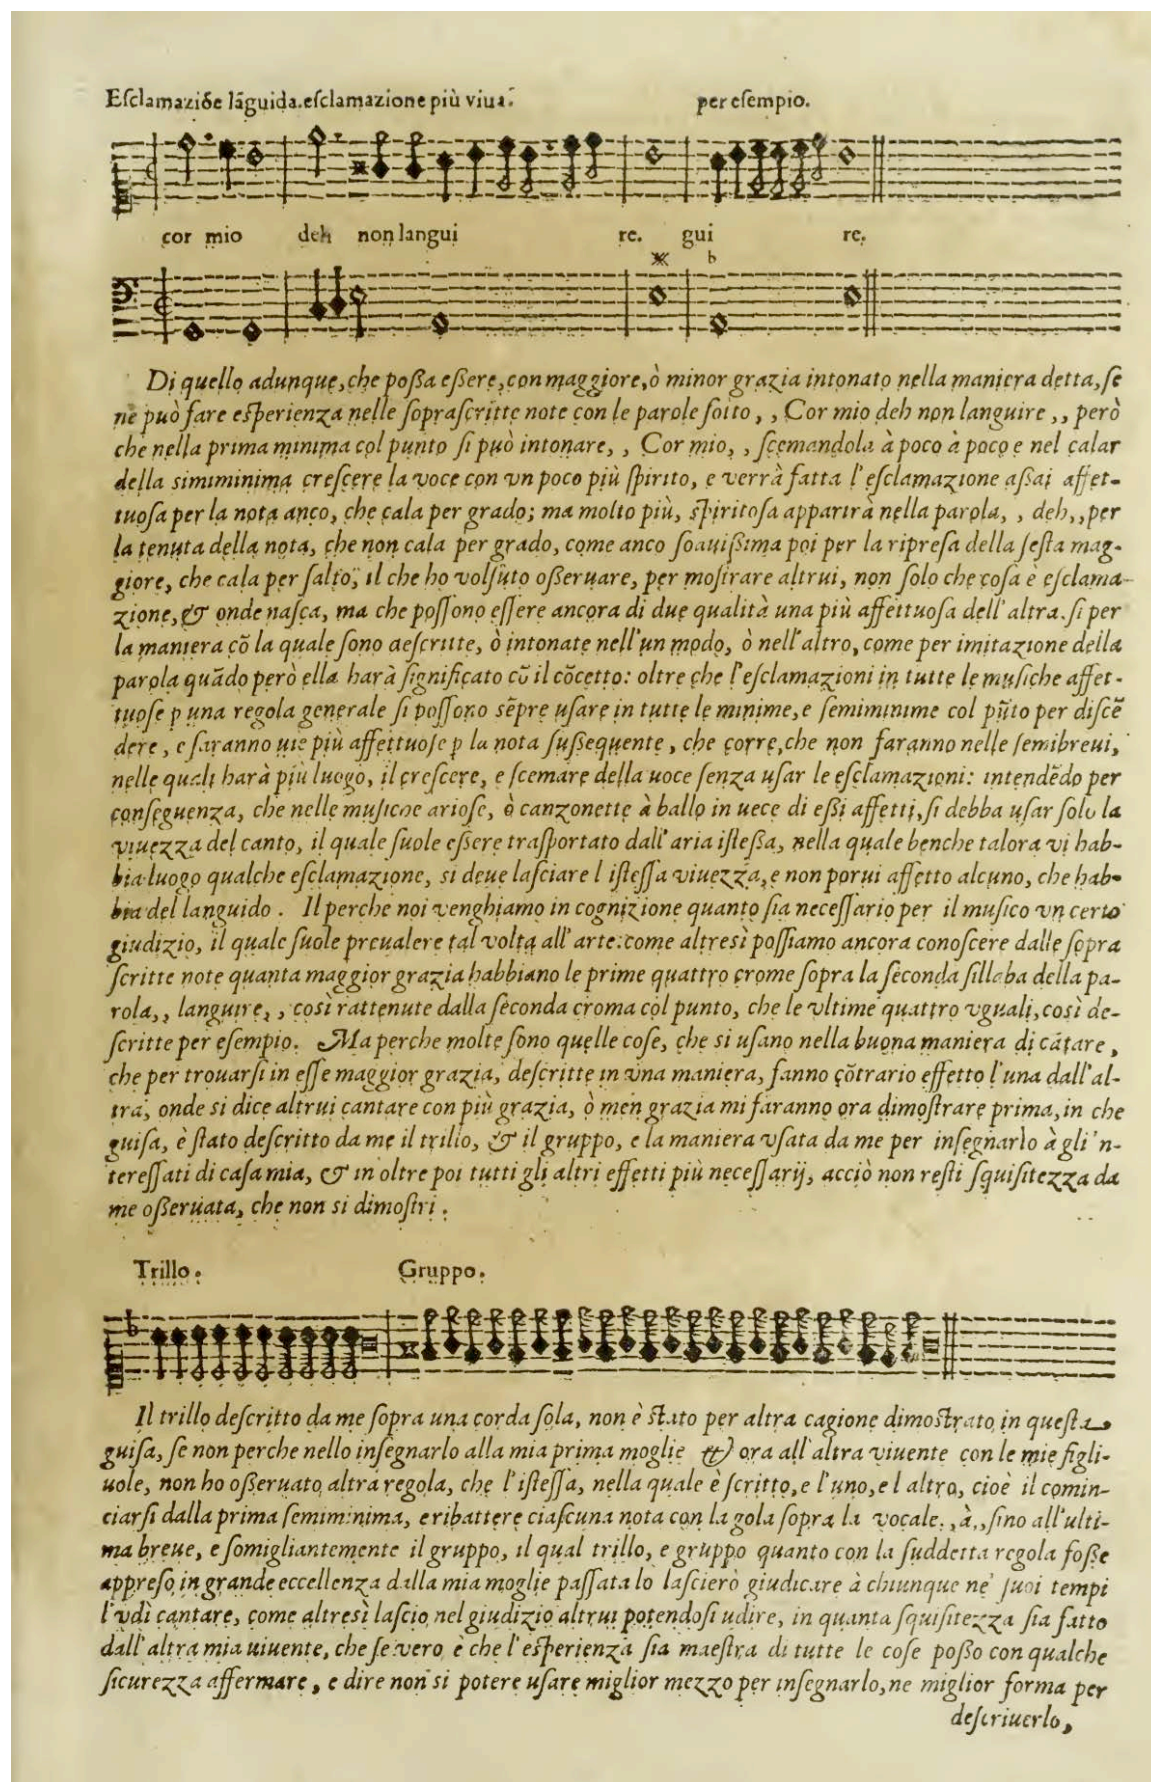 Eſclamaziõe lãguida. eſclamazione più viua. per eſempio.
cor mio deh non langui re. gui re.
Di quello adunque, che poßa eßere, con maggiore, ò minor grazia intonato nella maniera detta, ſe
ne può fare eſperienza nelle ſopraſcritte note con le parole ſotto , , Cor mio deh non languire , , però
che nella prima minima col punto ſi può intonare, , Cor mio, , ſcemandola à poco à poco e nel calar
della simiminima creſcere la voce con vn poco più ſpirito, e verrà fatta l'eſclamazione aßai affet-
tuoſa per la nota anco, che cala per grado; ma molto più, ſpiritoſa apparirà nella parola, , deh, , per
la tenuta della nota, che non cala per grado, come anco ſoauißima poi per la ripreſa della ſeſta mag-
giore, che cala per ſalto, il che ho volſuto oßeruare, per moſtrare altrui, non ſolo che coſa è eſclama-
zione, & onde naſca, ma che poſſono eſſere ancora di due qualità una più affettuoſa dell'altra. ſi per
la maniera cõ la quale ſono deſcritte, ò intonate nell'un modo, ò nell'altro, come per imitazione della
parola quãdo però ella harà ſignificato cõ il cõcetto: oltre che l'eſclamazioni in tutte le muſiche affet-
tuoſe p una regola generale ſi poſſono sẽpre uſare in tutte le minime, e ſemiminime col pũto per diſcẽ
dere, e ſaranno uie più affettuoſe p la nota ſußequente, che corre, che non faranno nelle ſemibreui,
nelle quali harà più luogo, il creſcere, e ſcemare della uoce ſenza uſar le eſclamazioni: intendẽdo per
conſeguenza, che nelle muſiche arioſe, ò canzonette à ballo in uece di eßi affetti, ſi debba uſar ſolo la
viuezza del canto, il quale ſuole eßere traſportato dall'aria iſteßa, nella quale benche talora vi hab-
bia luogo qualche eſclamazione, si deue laſciare l iſteſſa viuezza, e non porui affetto alcuno, che hab-
bia del languido. Il perche noi venghiamo in cognizione quanto ſia neceſſario per il muſico vn certo
giudizio, il quale ſuole preualere tal volta all'arte: come altresì poſſiamo ancora conoſcere dalle ſopra
ſcritte note quanta maggior grazia habbiano le prime quattro crome ſopra la ſeconda ſillaba della pa-
rola, , languire, , così rattenute dalla ſeconda croma col punto, che le vltime quattro vguali, così de-
ſcritte per eſempio. Ma perche molte ſono quelle coſe, che si uſano nella buona maniera di cãtare,
che per trouarſi in eſſe maggior grazia, deſcritte in vna maniera, fanno cõtrario effetto l'una dall'al-
tra, onde si dice altrui cantare con più grazia, ò men grazia mi faranno ora dimoſtrare prima, in che
guiſa, è ſtato deſcritto da me il trillo, & il gruppo, e la maniera vſata da me per inſegnarlo à gli'n-
tereſſati di caſa mia, & in oltre poi tutti gli altri effetti più neceſſarij, acciò non reſti ſquiſitezza da
me oßeruata, che non si dimoſtri.
Trillo. Gruppo.
Il trillo deſcritto da me ſopra una corda ſola, non è ſtato per altra cagione dimoſtrato in queſta
guiſa, ſe non perche nello inſegnarlo alla mia prima moglie & ora all'altra viuente con le mie figli-
uole, non ho oßeruato altra regola, che l'iſteſſa, nella quale è ſcritto, e l'uno, e l altro, cioè il comin-
ciarſi dalla prima ſemiminima, e ribattere ciaſcuna nota con la gola ſopra la vocale, , à, , ſino all'ulti-
ma breue, e ſomigliantemente il gruppo, il qual trillo, e gruppo quanto con la ſuddetta regola foße
appreſo in grande eccellenza dalla mia moglie paſſata lo laſcierò giudicare à chiunque ne' ſuoi tempi
l'vdì cantare, come altresì laſcio nel giudizio altrui potendoſi udire, in quanta ſquiſitezza ſia fatto
dall'altra mia uiuente, che ſe vero è che l'eſperienza ſia maeſtra di tutte le coſe poßo con qualche
ſicurezza affermare, e dire non si potere uſare miglior mezzo per inſegnarlo, ne miglior forma per
deſcriuerlo,